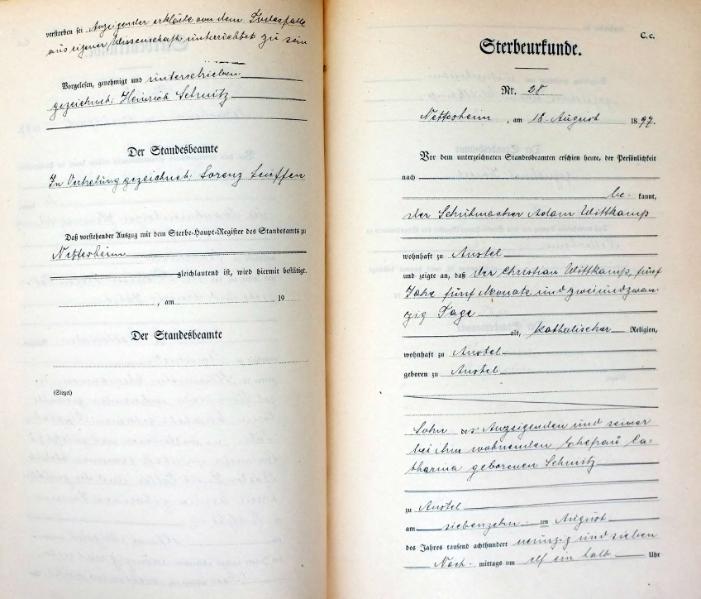 verstorben sei Anzeigender erklärte von dem Sterbefalle
aus eigener Wissenschaft unterrichtet zu sein
Vorgelesen, genehmigt und unterschrieben
gezeichnet: Heinrich Schmitz
Der Standesbeamte
In Vertretung gezeichnet: Lorenz
Daß vorstehender Auszug mit dem Sterbe-Haupt-Register des Standesamts zu
Nettesheim
gleichlautend ist, wird hiermit bestätigt.
, am 19
Der Standesbeamte
(Siegel)
C. c.
Sterbeurkunde.
Nr. 28
Nettesheim, am 18. August 1897.
Vor dem unterzeichneten Standesbeamten erschien heute, der Persönlichkeit
nach
be kannt,
der Schuhmacher Adam Wittkamp
wohnhaft zu Anstel
und zeigte an, daß der Christian Wittkamp, fünf
Jahre fünf Monate und zweiundzwan-
zig Tage
alt, katholischer Religion,
wohnhaft zu Anstel
geboren zu Anstel
Sohn des Anzeigenden und seiner
bei ihm wohnenden Ehefrau Ca-
tharina geborenen Schmitz
zu Anstel
am siebenzehnten August
des Jahres tausend achthundert neunzig und sieben
Nach mittags um elf ein halb Uhr